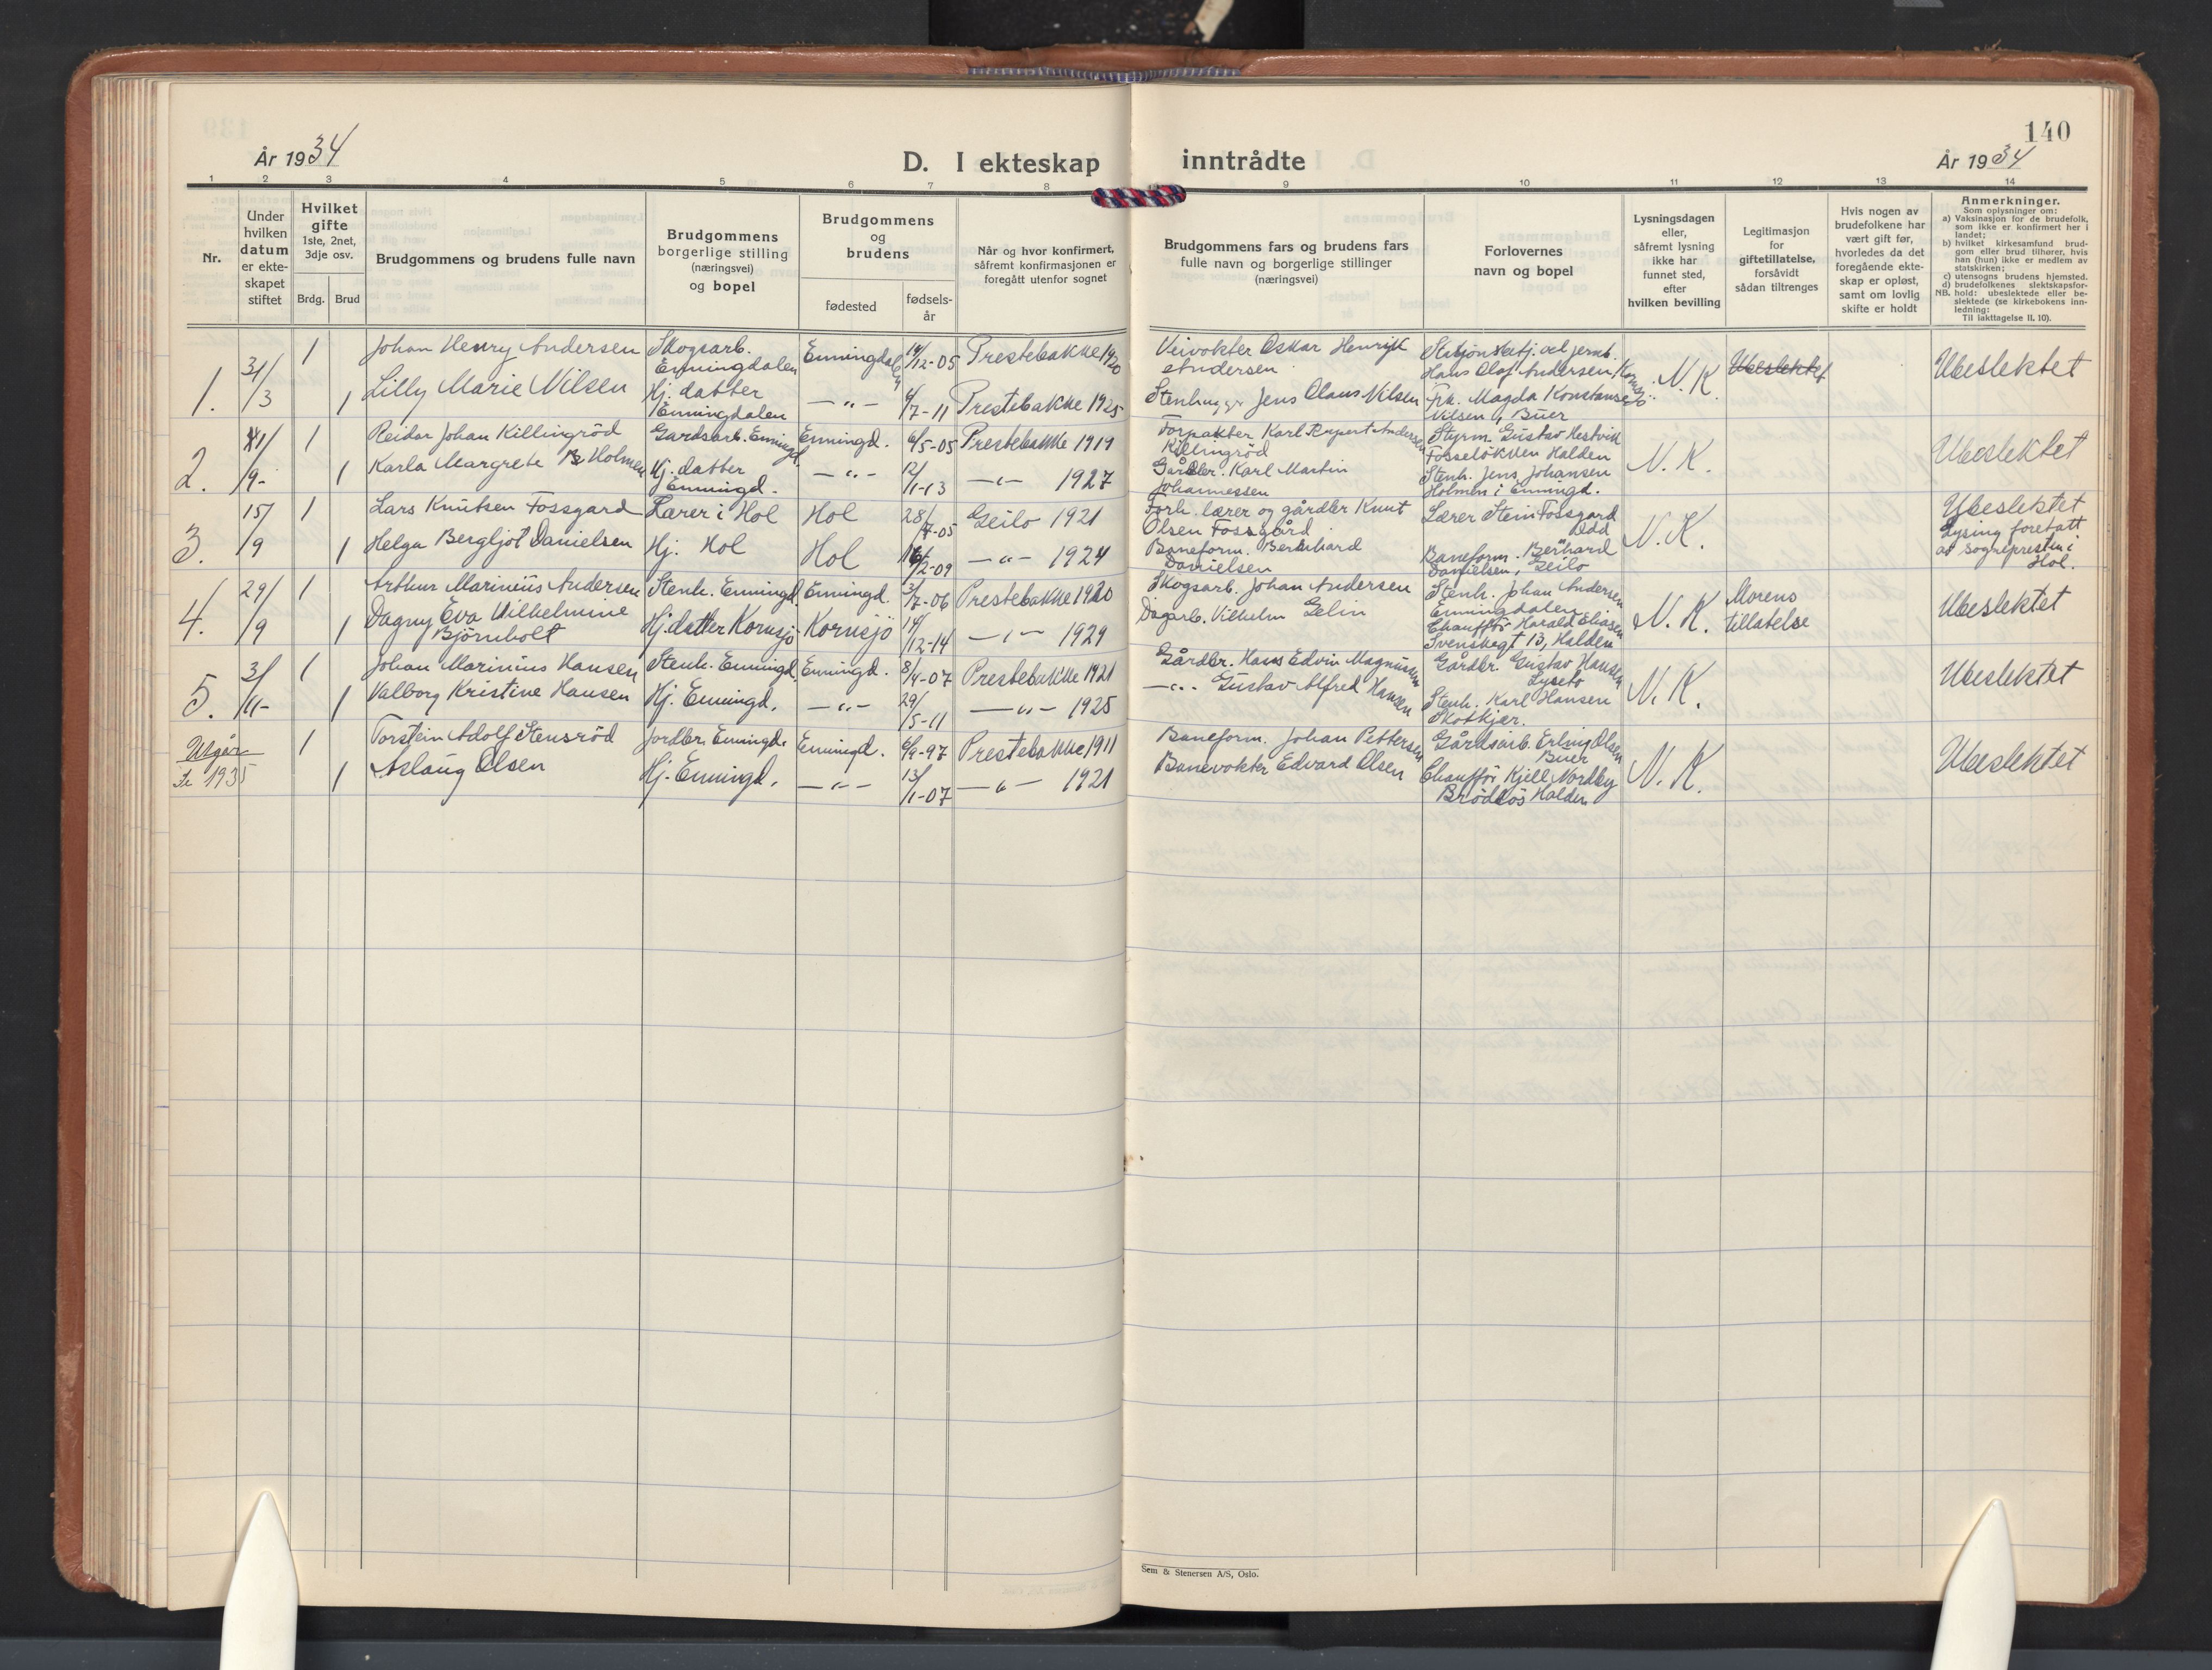 140
År 1934
D. I ekteskap inntrådte
År 1934
1 2 3 4 5 6 7 8 9 10 11 12 13 14
Nr.
Under
hvilken
datum
er ekte-
skapet
stiftet
Hvilket
gifte
1ste, 2net,
3dje osv.
Brdg. Brud
Brudgommens og brudens fulle navn
Brudgommens
borgerlige stilling
(næringsvei)
og bopel
Brudgommens
og
brudens
fødested
fødsels-
år
Når og hvor konfirmert,
såfremt konfirmasjonen er
foregått utenfor sognet
Brudgommens fars og brudens fars
fulle navn og borgerlige stillinger
(næringsvei)
Forlovernes
navn og bopel
Lysningsdagen
eller,
såfremt lysning
ikke har
funnet sted,
efter
hvilken bevilling
Legitimasjon
for
giftetillatelse,
forsåvidt
sådan tiltrenges
Hvis nogen av
brudefolkene har
vært gift før,
hvorledes da det
foregående ekte-
skap er opløst,
samt om lovlig
skifte er holdt
Anmerkninger.
Som oplysninger om:
a) Vaksinasjon for de brudefolk,
som ikke er konfirmert her i
landet;
b) hvilket kirkesamfund brud-
gom eller brud tilhører, hvis
han (hun) ikke er medlem av
statskirken;
c) utensogns brudens hjemsted.
d) brudefolkenes slektskapsfor-
NB. hold: ubeslektede eller be-
slektede (se kirkebokens inn-
ledning:
Til iakttagelse II, 10).
1.
31/3
1
Johan Henry Andersen
Skogsarb.
Enningdalen
Enningdalen
14/12-05
Prestebakke 1920
Veivokter Oskar Henrik
Andersen
Hans Olaf Andersen
N. K.
Ubeslektet
Ubeslektet
1
Lilly Marie Nilsen
Hj. datter
Enningdalen
— " —
6/7-11
Prestebakke 1925
Stenhugger Jens Olaus Nilsen
Frk. Magda Konstanse
Nilsen, Buer
2.
/9-
1
Reidar Johan Killingrød
Gardsarb. Enningd.
Enningd.
6/5-05
Prestebakke 1919
Forpakter Karl Rupert Andersen
Killingrød
Styrm. Gustav Hestvik
Fosseløkken Halden
N. K.
Ubeslektet
1
Karla Margrete Holmen
Hj. datter
Enningd.
— " —
12/1-13
— " — 1927
Gårdbr. Karl Martin
Johannessen
Stenh. Jens Johansen
Holmen i Enningd.
3.
15/9
1
Lars Knutsen Fossgard
Lærer i Hol
Hol
28/7-05
Geilo 1921
Forh. lærer og gårdbr Knut
Olsen Fossgård
Lærer Stein Fossgard
N. K.
Ubeslektet
Lysing foretatt
av sognepresten i
Hol.
1
Helga Bergljot Danielsen
Hj. Hol
Hol
/2-09
— " — 1924
Baneform. Bernhard
Danielsen
Baneform. Bernhard
Danielsen, Geilo
4.
29/9
1
Arthur Marinius Andersen
Stenh. Enningd.
Enningd.
3/7-06
Prestebakke 1920
Skogsarb. Johan Andersen
Stenh. Johan Andersen
Enningdalen
N. K.
Morens
tillatelse
Ubeslektet
1
Dagny Eva Wilhelmine
Bjørnholt
Hj. datter Kornsjø
Kornsjø
14/12-14
— " — 1929
Dagarb. Vilhelm Gelin
Chauffør Harald Eliasen
Svenskegt 13, Halden
5.
3/11-
1
Johan Marinius Hansen
Stenh. Enningd.
Enningd.
8/4-07
Prestebakke 1921
Gårdbr. Hans Edvin Magnussen
Gårdbr. Gustav Hansen
N. K.
Ubeslektet
1
Valborg Kristine Hansen
Hj. Enningd.
— " —
29/5-11
— " — 1925
— " — Gustav Alfred Hansen
Stenh. Karl Hansen
Skotkjær.
Utgår
1935
1
Torstein Adolf Stensrød
Jordbr. Enningd.
Enningd.
6/9-97
Prestebakke 1911
Baneform. Johan Pettersen
Gårdsarb. Erling Olsen
Buer
N. K.
Ubeslektet
1
Aslaug Olsen
Hj. Enningd.
— " —
13/1-07
— " — 1921
Banevokter Edvard Olsen
Chauffør Kjell Nordby
Brødløs Halden
Sem & Stenersen A/S, Oslo.